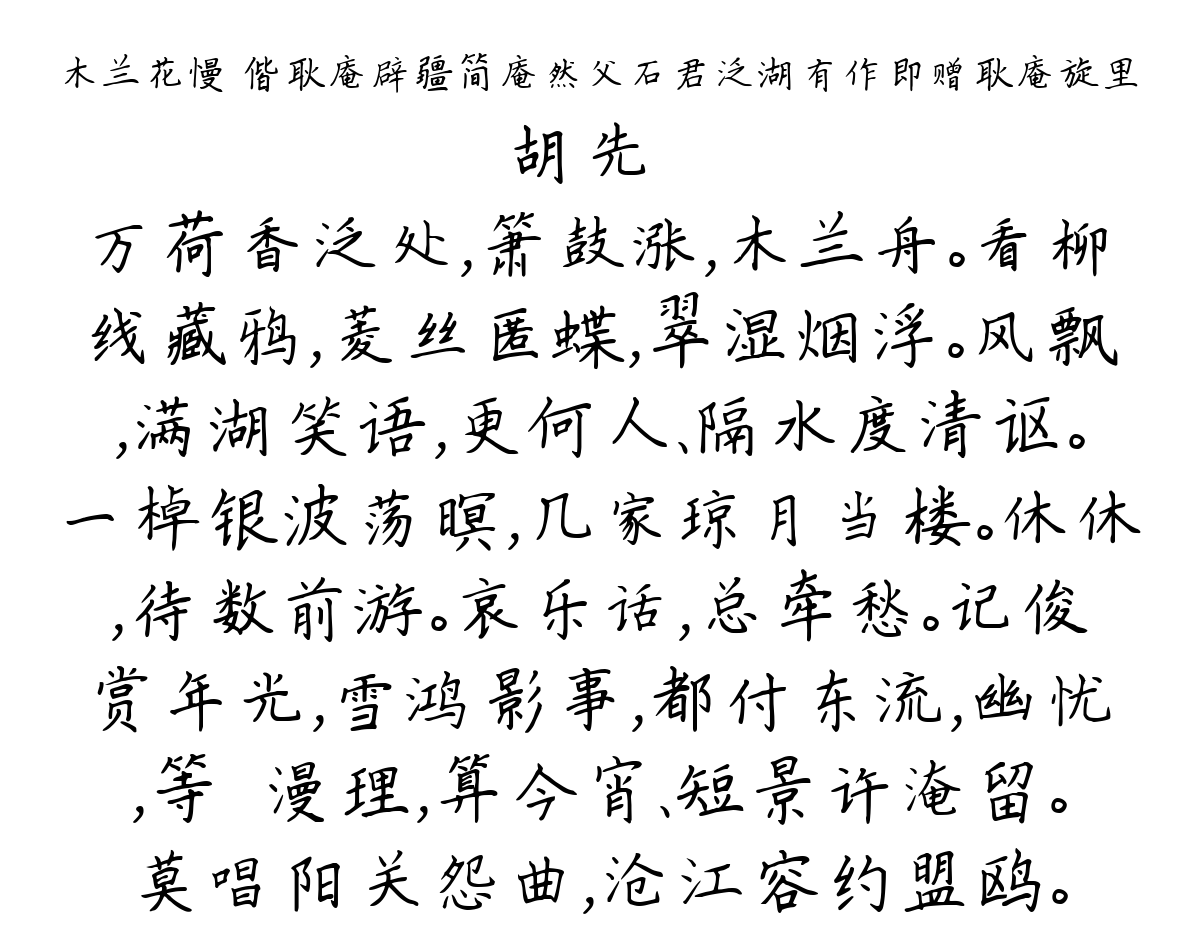 木兰花慢 偕耿庵辟疆简庵然父石君泛湖有作即赠耿庵旋里
胡先
万荷香泛处,箫鼓涨,木兰舟。看柳
线藏鸦,菱丝匿蝶,翠湿烟浮。风飘
,满湖笑语,更何人、隔水度清讴。
一棹银波荡暝,几家琼月当楼。休休
,待数前游。哀乐话,总牵愁。记俊
赏年光,雪鸿影事,都付东流,幽忧
,等 漫理,算今宵、短景许淹留。
莫唱阳关怨曲,沧江容约盟鸥。